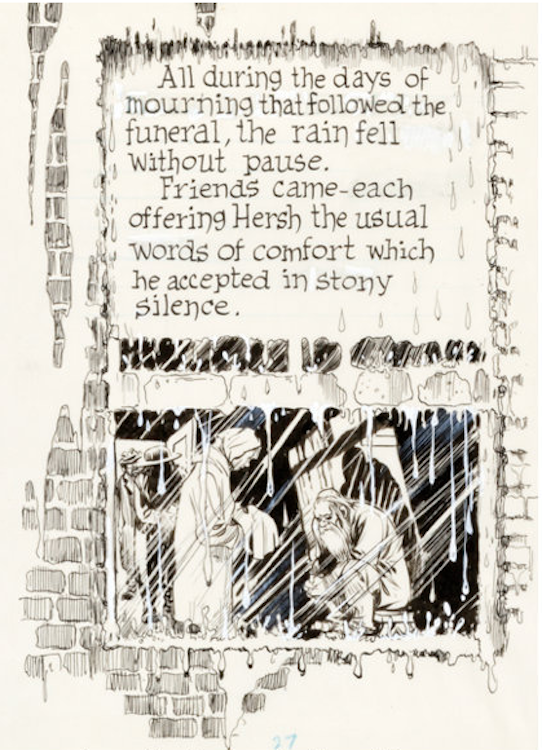 All during the days of
mourning that followed the
funeral, the rain fell
without pause.
Friends came-each
offering Hersh the usual
words of comfort which
he accepted in stony
silence.
27